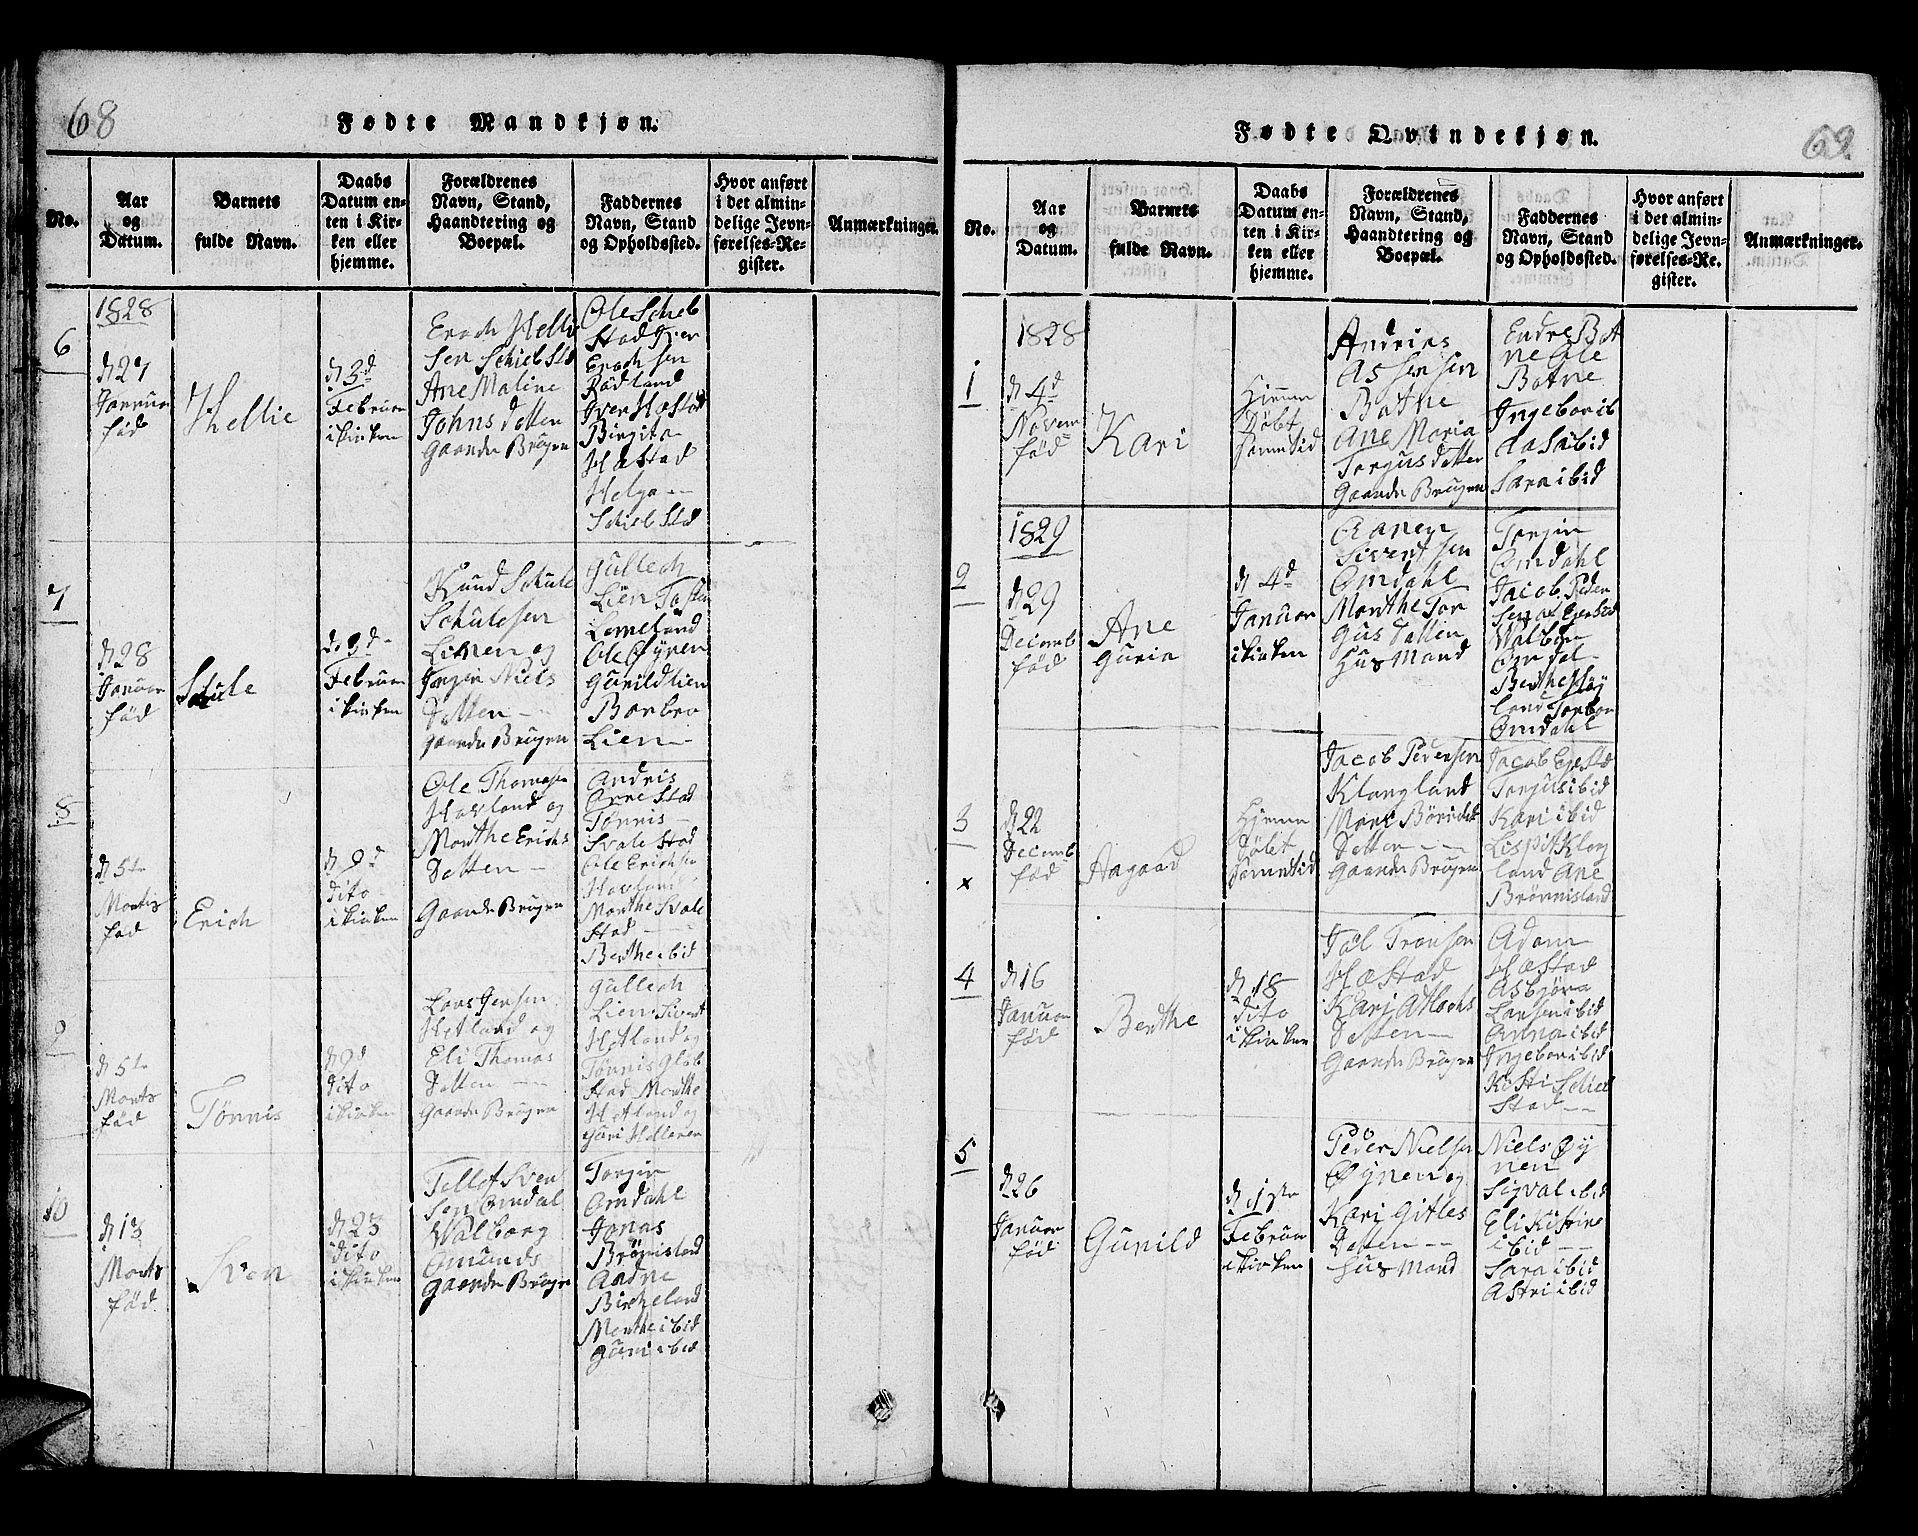 68
Fødte Mandkjøn.
No.
Aar
og
Datum.
Barnets
fulde Navn.
Daabs
Datum en-
ten i Kir-
ken eller
hjemme.
Forældrenes
Navn, Stand,
Haandtering og
Boepæl.
Faddernes
Navn, Stand
og Opholdssted.
Hvor anført
i det almin-
delige Jevn-
førelses-Re-
gister.
Anmærkninger.
1828
6
d 27
Januar
fød
Thellie
d 3d
Februar
i kirken
Erach Helli
sen Schiebstd
Ane Maline
Johns datter
Gaardr Brugen
Ole Schieb
Stad Iver
Erach sen
Rødland
Iver Hæstad
Birgita
Hæstad
Helga
Schiebstd
7
d 28
Januar
fød
Schule
d 9d
Februar
i kirken
Knud Schule
Schulesen
Lienen og
Torgin Niels
Datter
gaardr Brugen
Gullech
Lien Tosten
Lomeland
Ole Øynen
Gunild Lien
Barbro
Lien
8
d 5te
Martis
fød
Erich
d 9d
dito
i kirken
Ole Thomasen
Hovland og
Marthe Erichs
Datter
Gaardr Brugen
Andris
Arnestad
Tønnis
Svalestad
Ole Erichsen
Hovland
Marthe Svale
Stad
Berthe ibid
9
d 5te
Marts
fød
Tønnis
d 9d
dito
i kirken
Lars Jensen
Hetland og
Eli Thomas
Datter
Gaardr Brugen
Gullech
Lien Sivert
Hetland og
Tønnis Glob
stad Marthe
Hetland og
Guri Helleren
10
d 13
Marts
fød
Sven
d 23
dito
i kirken
Tellof Sven
sen Omdal
Walborg
Omunds
gaardr Brugen
Torgin
Omdahl
Jonas
Brønisland
Andne
Birkeland
Marthe ibid
Guri ibid
69.
Fødte Qvindekjøn.
No.
Aar
og
Datum.
Barnets
fulde Navn.
Daabs
Datum en-
ten i Kir-
ken eller
hjemme.
Forældrenes
Navn, Stand,
Haandtering og
Boepæl.
Faddernes
Navn, Stand
og Opholdssted.
Hvor anført
i det almin-
delige Jevn-
førelses-Re-
gister.
Anmærkninger.
1828
1
d 4d
Novem
fød
Kari
Hjemme
Døbt
samme tid
Andrias
Assersen
Bothe
Ane Maria
Torgus datter
Gaardr Brugen
Endre Bot
ne Ole
Botne
Ingebor ib
Aasa ibid
Sara ibid
1829
2
d 29
Decemb
fød
Ane
Guria
d 4d
Januar
i kirken
Aanen
Sivertsen
Omdahl
Marthe Tor
Gus datter
Husmand
Torgin
Omdahl
Jacob Peder
sen
Walborg
Omdal
Berthe Høy
land Torbor
Omdahl
3
x
d 22
Decemb
fød
Aagaad
Hjemme
Døbt
samme tid
Jacob Pedersen
Klongland
Mari Børild
Datter
Gaardr Brugen
Jacob Egestd
Torgius ibid
Kari ibid
Lispit Klong
land Ane
Brønnisland
4
d 16
Januar
fød
Berthe
d 18
dito
i kirken
Joel Tronsen
Hæstad
Kari Atlachs
Datter
Gaardr Brugen
Adam
Hæstad
Asbjørn
Larsen ibid
Anna ibid
Ingebor ibid
Kisti Schieb
Stad
5
d 26
Januar
fød
Gunild
d 1ste
Februar
i kirken
Peder Nielsen
Øynen og
Kari Gitles
Datter
Husmand
Niels Øy
nen
Sigval ibid
Eli Kistine
ibid
Sara ibid
Astri ibid